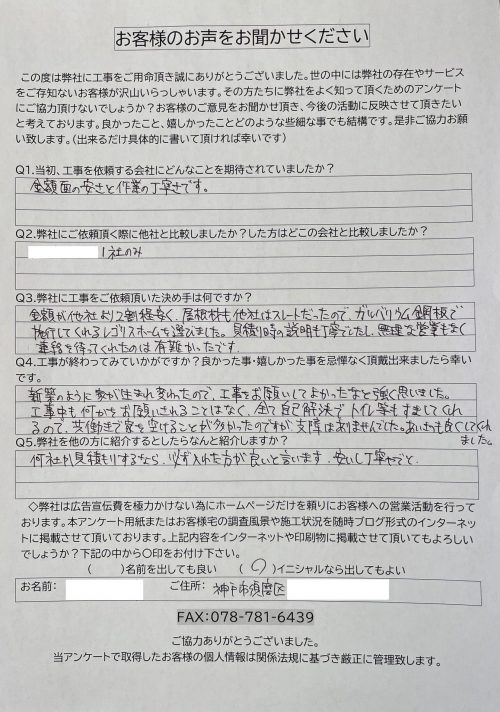 お客様のお声をお聞かせください
この度は弊社に工事をご用命頂き誠にありがとうございました。世の中には弊社の存在やサービス
をご存知ないお客様が沢山いらっしゃいます。その方たちに弊社をよく知って頂くためのアンケート
にご協力頂けないでしょうか？お客様のご意見をお聞かせ頂き、今後の活動に反映させて頂きたい
と考えております。良かったこと、嬉しかったことどのような些細な事でも結構です。是非ご協力お願
い致します。（出来るだけ具体的に書いて頂ければ幸いです）
Q1.当初、工事を依頼する会社にどんなことを期待されていましたか？
金額面の安さと作業の丁寧さです。
Q2.弊社にご依頼頂く際に他社と比較しましたか？した方はどこの会社と比較しましたか？
1社のみ
Q3.弊社に工事をご依頼頂いた決め手は何ですか？
金額が他社より2割程安く、屋根材も他社はスレートだったので、ガルバリウム鋼板で
施行してくれるレゴリスホームを選びました。見積り時の説明も丁寧でしたし、無理な営業もなく
連絡を待ってくれたのは有難かったです。
Q4.工事が終わってみていかがですか？良かった事・嬉しかった事を忌憚なく頂戴出来ましたら幸い
です。
新築のように家が生まれ変わったので、工事をお願いしてよかったなと強く思いました。
工事中も何かをお願いされることはなく、全て自己解決でトイレ等もすましてくれ
るので、共働きで家を空けることが多かったのですが支障はありませんでした。あいさつも良くしてくれ
ました。
Q5.弊社を他の方に紹介するとしたらなんと紹介しますか？
何社か見積もりするなら、必ず入れた方が良いと言います。安いし丁寧やでと。
◇弊社は広告宣伝費を極力かけない為にホームページだけを頼りにお客様への営業活動を行って
おります。本アンケート用紙またはお客様宅の調査風景や施工状況を随時ブログ形式のインターネッ
トに掲載させて頂いております。上記内容をインターネットや印刷物に掲載させて頂いてもよろしい
でしょうか？下記の中から〇印をお付け下さい。
（　　）名前を出しても良い　（〇）イニシャルなら出してもよい
お名前：　ご住所：神戸市須磨区
FAX：078-781-6439
ご協力ありがとうございました。
当アンケートで取得したお客様の個人情報は関係法規に基づき厳正に管理致します。